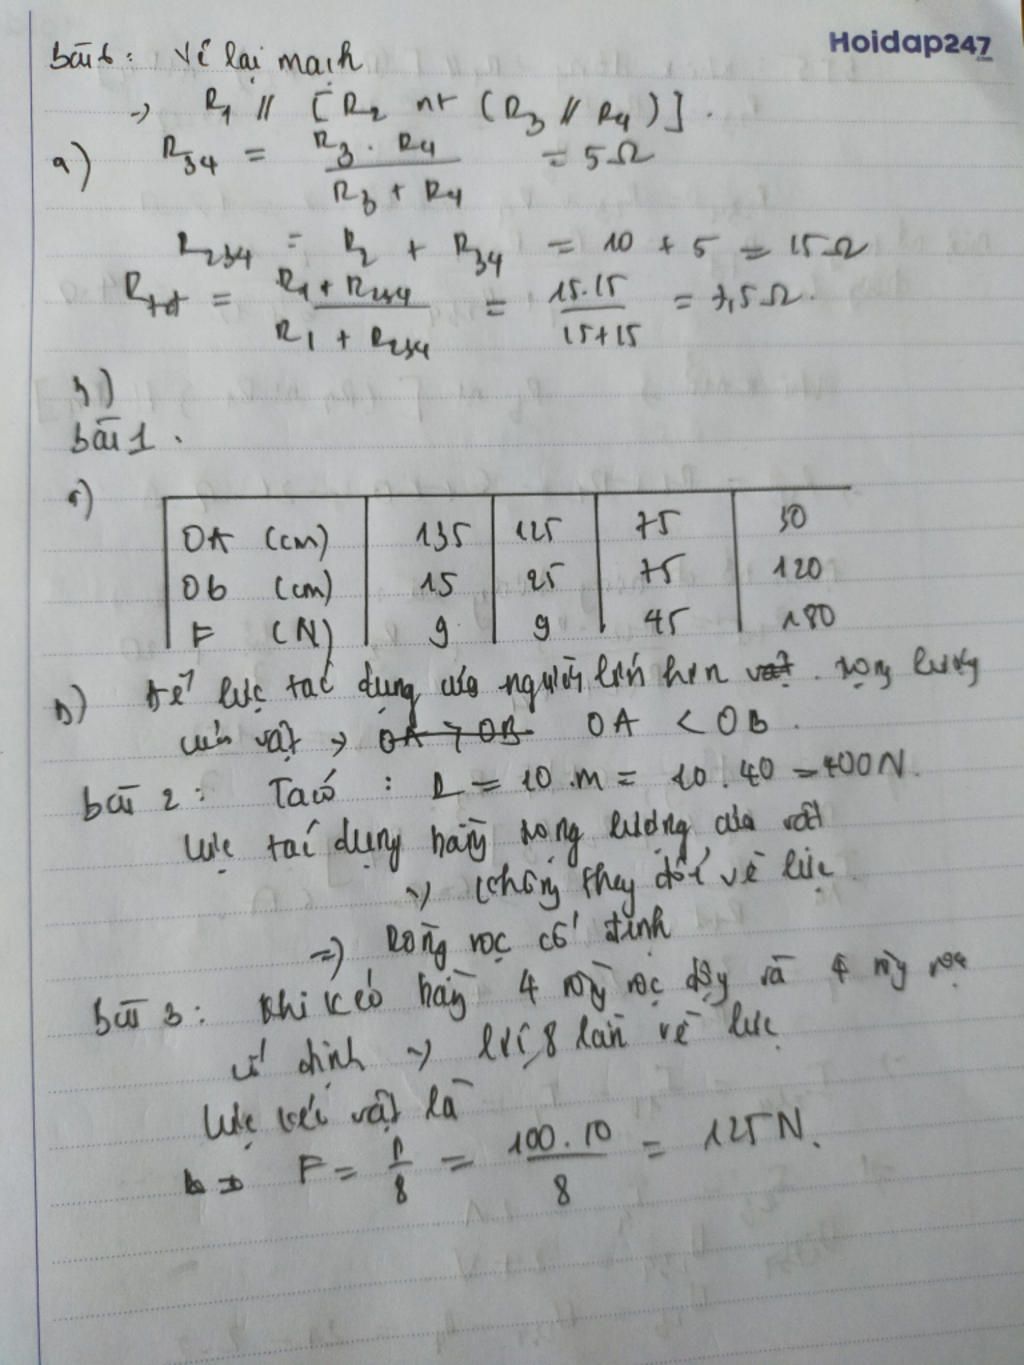 Hoidap247
.com
bài 6: Vẽ lại mạch
-> R1 // [R2 nt (R3 // R4)].
a) R34 = R3 . R4 / R3 + R4 = 5Ω
R234 = R2 + R34 = 10 + 5 = 15Ω
Rtđ = R1 + R234 / R1 + R234 = 15.15 / 15+15 = 7,5Ω.
bài 1.
OA (cm) 135 125 75 30
Ob (cm) 15 25 75 120
F (N) 9 9 45 180
b) Để lực tác dụng của người lớn hơn vật. trọng lượng
của vật -> OA > OB OA < OB.
bài 2: Ta có: P = 10.m = 10.40 = 400N.
Lực tác dụng bằng trọng lượng của vật
-> không thay đổi về lực.
=> Ròng rọc cố định
bài 3: Khi kéo bằng 4 ròng rọc động và 4 ròng rọc
cố định -> lợi 8 lần về lực
Lực kéo vật là
F = P / 8 = 100.10 / 8 = 125N.